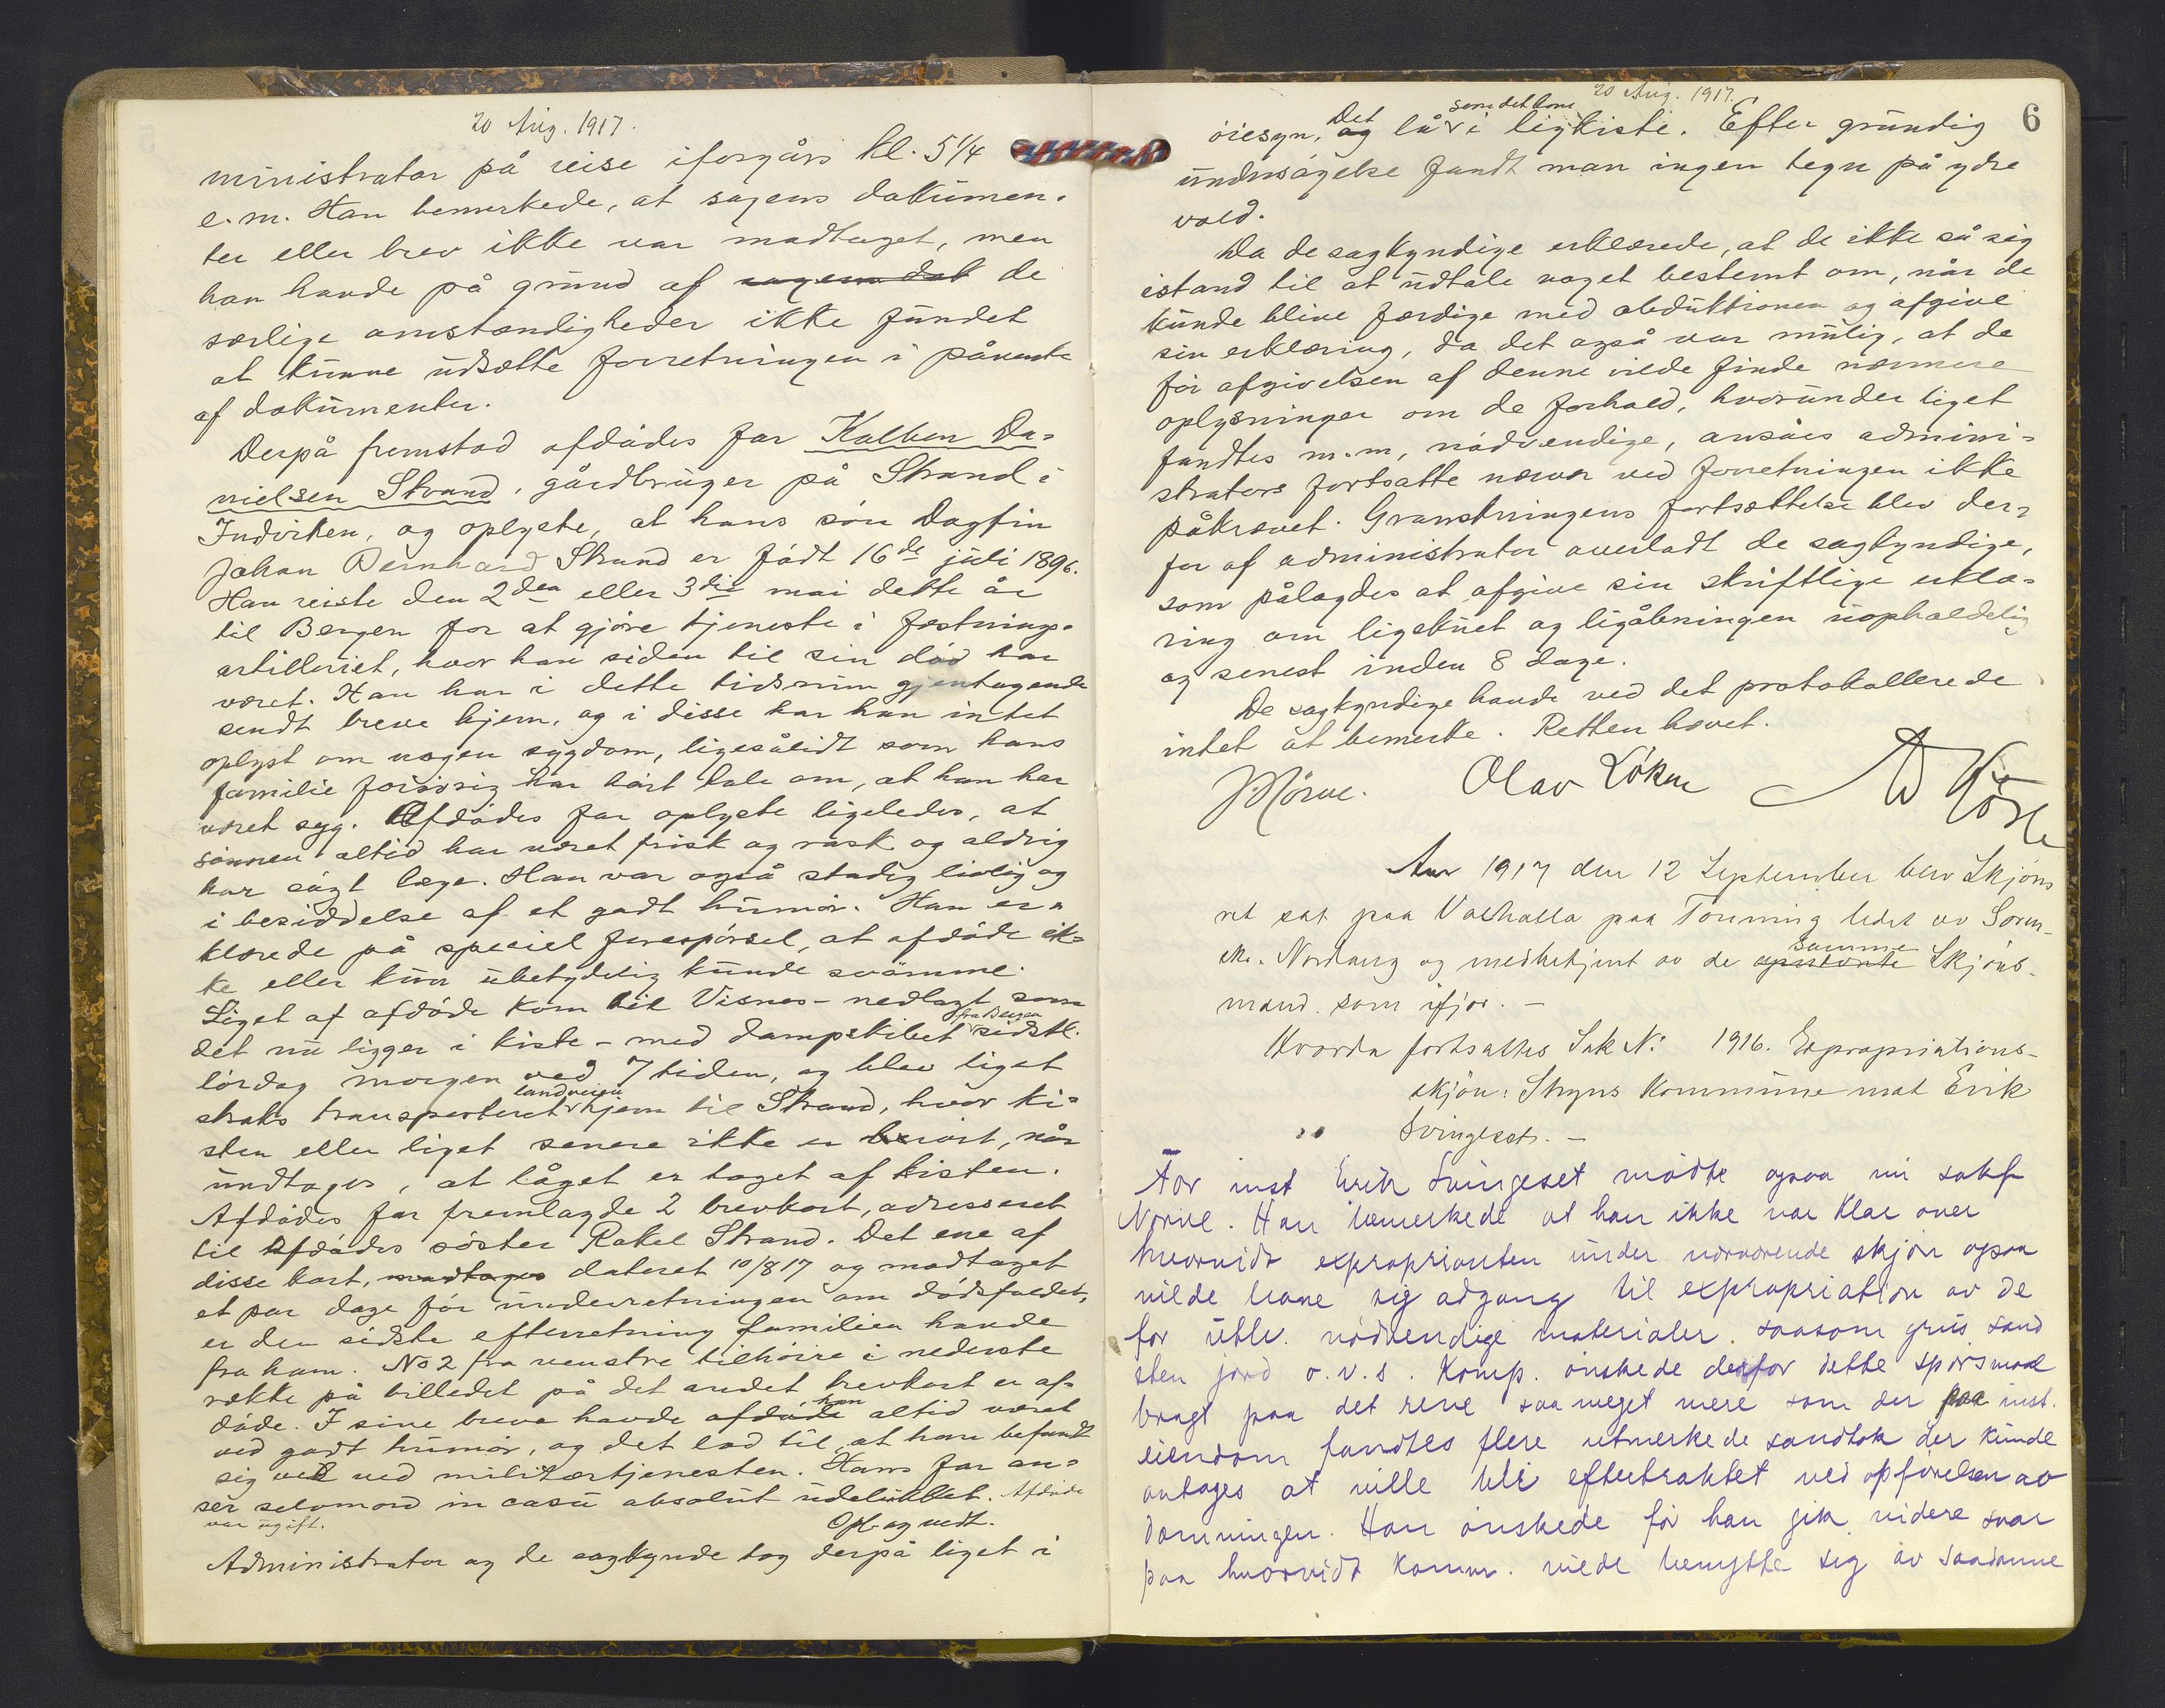 20 Aug. 1917.
ministrator på reise iforgårs kl. 5 1/4
e.m. Han bemerkede, at sagens dokumen-
ter eller brev ikke var modtaget, men
han havde på grund af sagens dok de
særlige omstændigheder ikke fundet
at kunne udsætte forretningen i påvente
af dokumenter.
Derpå fremstod afdødes far Kolben Da-
nielsen Strand, gårdbruger på Strand i
Indviken, og oplyste, at hans søn Dagfin
Johan Bernhard Strand er født 16de juli 1896.
Han reiste den 2den eller 3die mai dette år
til Bergen for at gjøre tjeneste i fæstnings-
artilleriet, hvor han siden til sin død har
været. Han har i dette tidsrum gjentagende
sendt breve hjem, og i disse har han intet
oplyst om nogen sygdom, ligesålidt som hans
familie forøvrig har hørt tale om, at han har
været syg. Afdødes far oplyste ligeledes, at
sønnen altid har været frisk og rask og aldrig
har søgt læge. Han var også stadig livlig og
i besiddelse af et godt humør. Han er-
klærede på speciel forespørsel, at afdøde ik-
ke eller kun ubetydelig kunde svømme.
Liget af afdøde kom til Visnes - nedlagt som
det nu ligger i kiste - med dampskibet fra Bergen sidstl.
lørdag morgen ved 7 tiden, og blev liget
straks transporteret landveien hjem til Strand, hvor ki-
sten eller liget senere ikke er berørt, når
undtages, at låget er taget af kisten.
Afdødes far fremlagde 2 brevkort, adresseret
til afdødes søster Rakel Strand. Det ene af
disse kort, modtages dateret 10/8 17 og modtaget
et par dage før underretningen om dødsfaldet,
er den sidste efterretning familien havde
fra ham. No 2 fra venstre tilhøire i nederste
række på billedet på det andet brevkort er af-
døde. I sine breve havde afdøde han altid været
ved godt humør, og det lod til, at han befandt
sig vel ved militærtjenesten. Hans far an-
ser selvmord in casu absolut udelukket. Afdøde
var ugift.
Opl. og vedt.
Administrator og de sagkynde tog derpå liget i
20 Aug. 1917.
6
øiesyn, og Det lå som det kom i ligkiste. Efter grundig
undersøgelse fandt man ingen tegn på ydre
vold.
Da de sagkyndige erklærede, at de ikke så sig
istand til at udtale noget bestemt om, når de
kunde blive færdige med obduktionen og afgive
sin erklæring, da det også var mulig, at de
før afgivelsen af denne vilde finde nærmere
oplysninger om de forhold, hvorunder liget
fandtes m.m, nødvendige, ansåes admini-
strators fortsatte nærvær ved forretningen ikke
påkrævet. Granskningens fortsættelse blev der-
for af administrator overladt de sagkyndige,
som pålagdes at afgive sin skriftlige erklæ-
ring om ligskuet og ligåbningen uopholdelig
og senest inden 8 dage.
De sagkyndige havde ved det protokollerede
intet at bemerke. Retten hævet.
Olav Løken
Aar 1917 den 12 September blev Skjøns
ret sat paa Valhalla paa Tonning ledet av Soren-
skr. Nordang og medbetjent av de samme Skjøns-
mænd som ifjor. -
Hvorda fortsattes Sak No 1916. Expropriations-
skjøn: Stryns Kommune mot Erik
" Svingeset. -
For inst Erik Svingeset mødte ogsaa nu sakf
Nörve. Han bemerkede at han ikke var klar over
hvorvidt exproprianten under nærværende skjøn ogsaa
vilde have sig adgang til expropriation av de
for utbv. nødvendige materialer. saasom grus sand
sten jord o.v.s. Komp. ønskede derfor dette spørsmaal
bragt paa det rene saa meget mere som der paa inst.
eiendom fandtes flere utmerkede sandtak der kunde
antages at ville bli eftertraktet ved opførelsen av
dæmningen. Han ønskede før han gik videre svar
paa hvorvidt komm. vilde benytte sig av saadanne